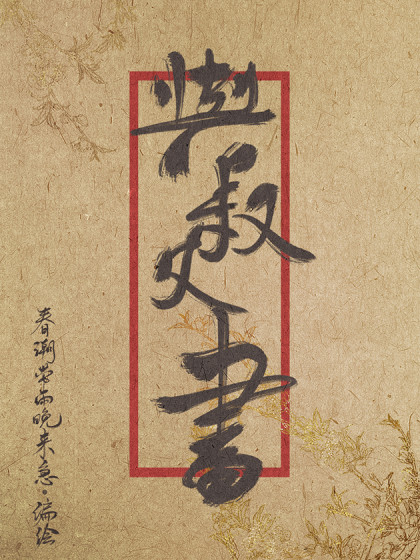 與叔父書
春潮带雨晚来急·编绘